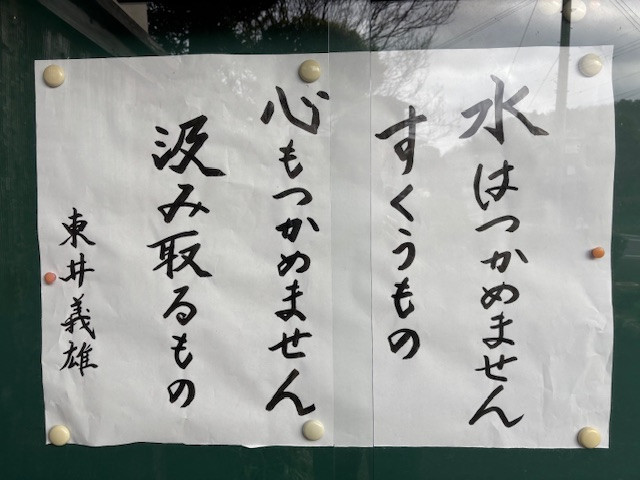 水はつかめません
すくうもの
心もつかめません
汲み取るもの
東井義雄